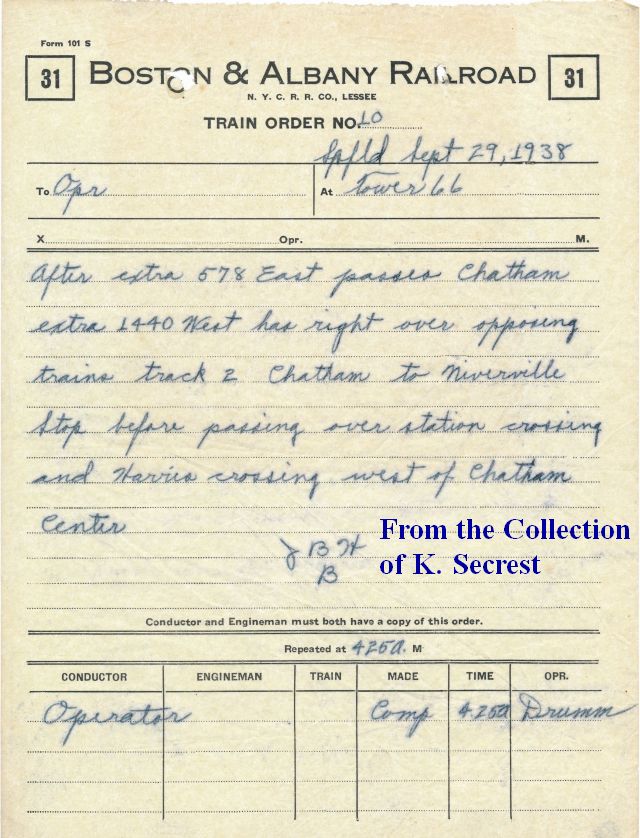 Form 101 S
31 BOSTON & ALBANY RAILROAD 31
N. Y. C. R. R. CO., LESSEE
TRAIN ORDER NO. 10
Spfld Sept 29, 1938
To Opr At Tower 66
X Opr. M.
After extra 578 East passes Chatham
extra 1440 West has right over opposing
trains track 2 Chatham to Niverville
Stop before passing over station crossing
and Harris crossing west of Chatham
Center
J B H
B
From the Collection
of K. Secrest
Conductor and Engineman must both have a copy of this order.
Repeated at 425a. M
CONDUCTOR ENGINEMAN TRAIN MADE TIME OPR.
Operator Comp 425a Drumm